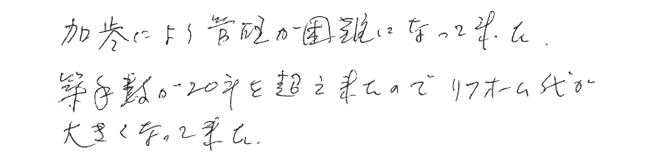 加令により管理が困難になって来た.
築年数が20年を超え来たのでリフォーム代が
大きくなって来た.